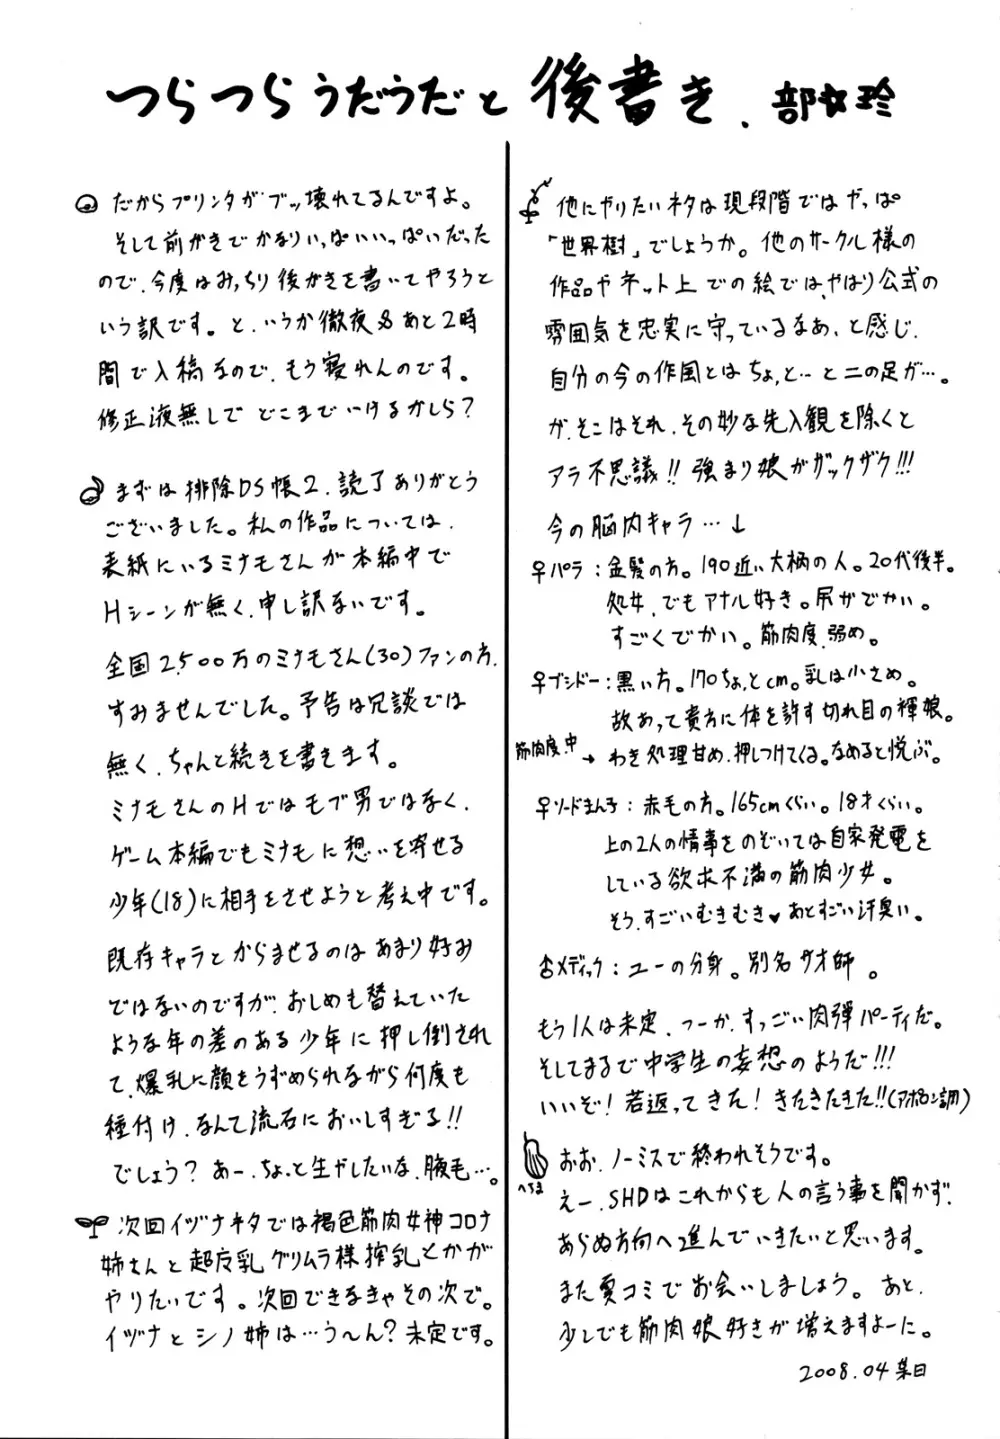 つらつらうだうだと後書き. 部女玲
だからプリンタがブッ壊れてるんですよ。
そして前がきでかなりいっぱいいっぱいだった
ので、今度はみっちり後がきを書いてやろうと
いう訳です。と、いうか徹夜&あと2時
間で入稿なので、もう寝れんのです。
修正液無しでどこまでいけるかしら?
まずは排除DS帳2、読了ありがとう
ございました。私の作品については、
表紙にいるミナモさんが本編中で
Hシーンが無く、申し訳ないです。
全国2,500万のミナモさん(30)ファンの方、
すみませんでした。予告は冗談では
無く、ちゃんと続きを書きます。
ミナモさんのHではモブ男ではなく、
ゲーム本編でもミナモに想いを寄せる
少年(18)に相手をさせようと考え中です。
既存キャラとからませるのはあまり好み
ではないのですが、おしめも替えていた
ような年の差のある少年に押し倒され
て、爆乳に顔をうずめられながら何度も
種付け、なんて流石においしすぎる!!
でしょう?あー、ちょっと生やしたいな、腋毛…。
次回イヅナネタでは褐色筋肉女神コロナ
姉さんと超反乳グリムラ様搾乳とかが
やりたいです。次回できなきゃその次で。
イヅナとシノ姉は…う〜ん?未定です。
他にやりたいネタは現段階ではやっぱ
「世界樹」でしょうか。他のサークル様の
作品やネット上での絵では、やはり公式の
雰囲気を忠実に守っているなあ、と感じ、
自分の今の作風とはちょっと…と二の足が…。
が、そこはそれ、その妙な先入観を除くと
アラ不思議!!強まり娘がザックザク!!!
今の脳内キャラ…↓
♀パラ:金髪の方。190近い大柄の人。20代後半。
処女、でもアナル好き。尻がでかい。
すごくでかい。筋肉度、弱め。
♀ブシドー:黒い方。170ちょっとcm。乳は小さめ。
故あって貴方に体を許す切れ目の褌娘。
筋肉度、中→わき処理甘め、押しつけてくる。なめると悦ぶ。
♀ソードまん子:赤毛の方。165cmくらい。18才くらい。
上の2人の情事をのぞいては自家発電を
している欲求不満の筋肉少女。
そう、すごいむきむき♥あとすごい汗臭い。
♂メディック:ユーの分身。別名サオ師。
もう1人は未定、つーか、すっごい肉弾パーティだ。
そしてまるで中学生の妄想のようだ!!!
いいぞ!若返ってきた!きたきたきた!!(アポロン調)
へちま
おお、ノーミスで終われそうです。
えー、SHDはこれからも人の言う事を聞かず、
あらぬ方向へ進んでいきたいと思います。
また夏コミでお会いしましょう。あと、
少しでも筋肉娘好きが増えますよーに。
2008.04某日